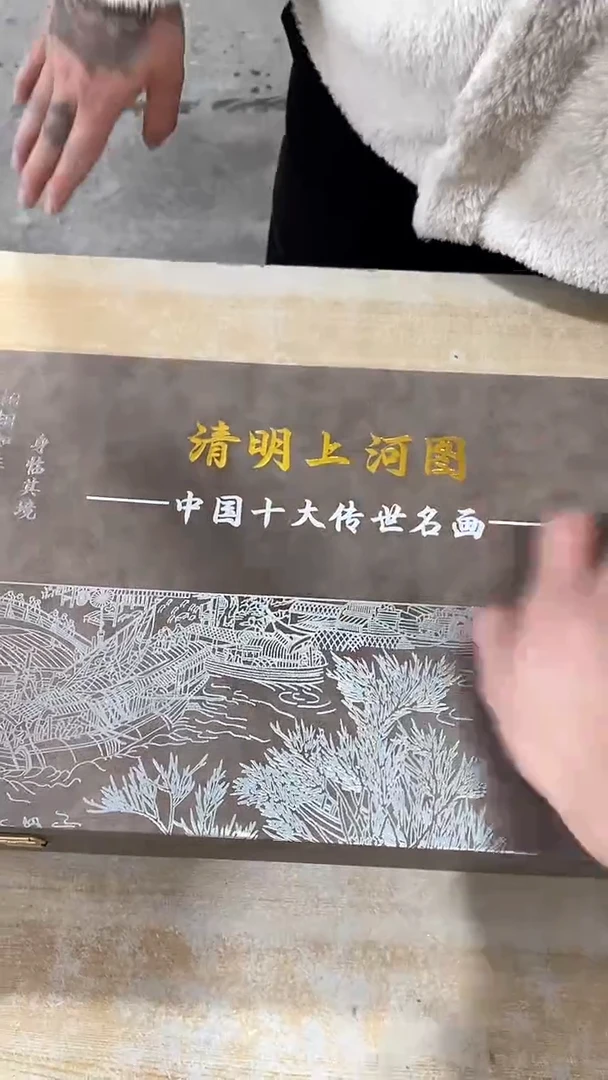 清明上河图
中国十大传世名画
身临其境